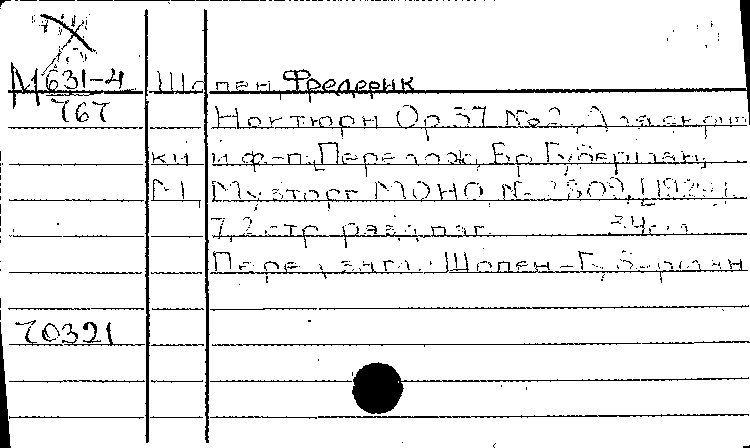 М 631-4
767
Шопен, Фредерик
Ноктюрн Op. 37 №2, Для скрип
ки и ф-п. [Перелож. Бр. Губерман,
М, Музторг МОНО № 2809, [192
7, 2 стр. разд. паг. 34
Перед загл.: Шопен-Губерман
70321